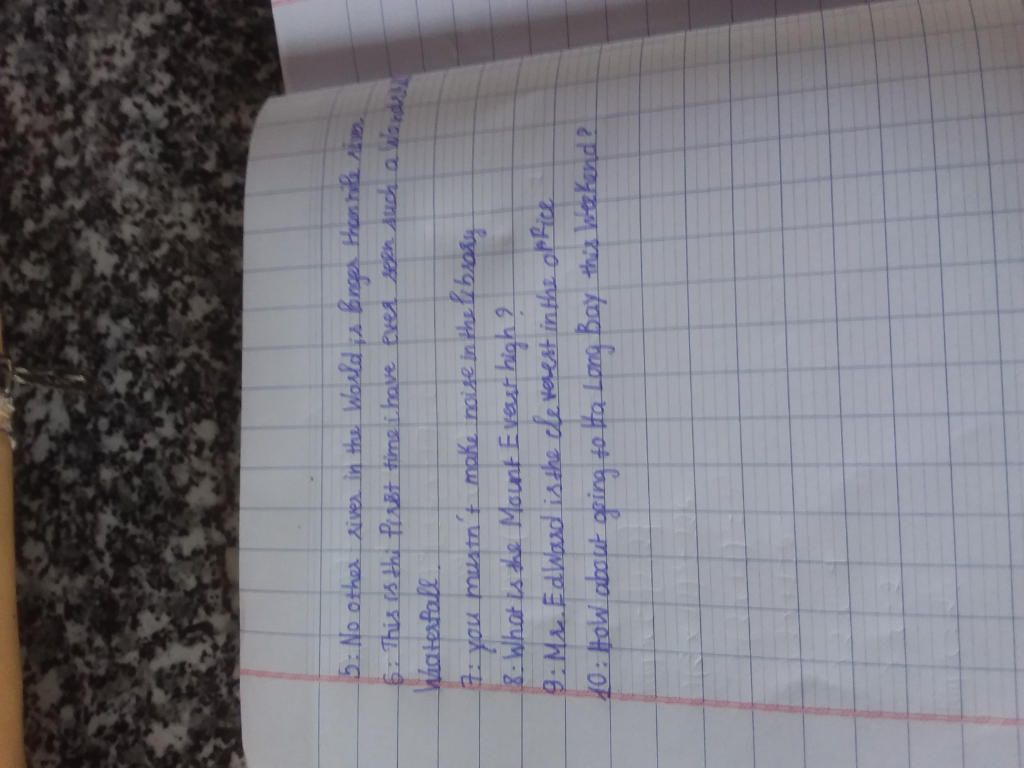 5: No other river in the World is longer than Nile river.
6: This is the first time i have ever seen such a
Waterfall.
7: you mustn't make noise in the library
8. What is the Mount Everest high?
9: Mr. Edward is the cleverest in the office
10: How about going to Ha Long Bay this weekend?